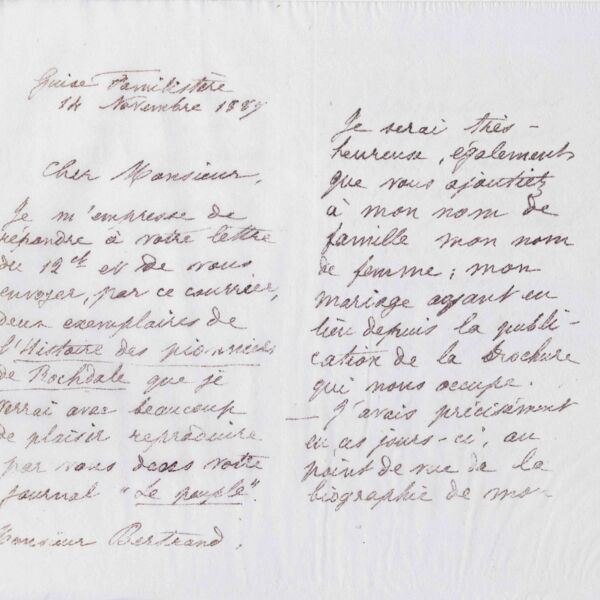 Guise Familistère
14 Novembre 1889
Cher Monsieur,
Je m'empresse de
répondre à votre lettre
du 12 ct et de vous
envoyer, par ce courrier,
deux exemplaires de
l'Histoire des pionniers
de Rochdale que je
verrai avec beaucoup
de plaisir reproduire
par vous dans votre
journal "Le peuple".
Monsieur Bertrand.
Je serai très-
heureuse, également
que vous ajoutiez
à mon nom de
famille mon nom
de femme; mon
mariage ayant eu
lieu depuis la publi-
cation de la brochure
qui nous occupe.
_ J'avais précisément
en ces jours-ci, au
point de vue de la
biographie de mon